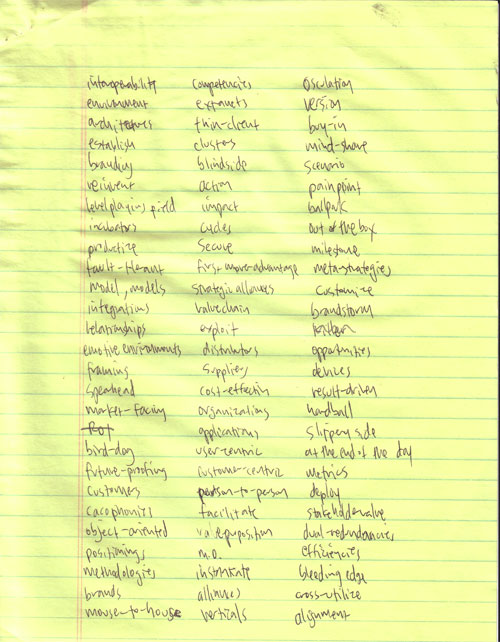 interoperability competencies osculation
environment extranets version
architectures thin-client buy-in
establish clusters mind-share
branding blindside scenario
reinvent action painpoint
level playing field impact ballpark
incubators cycles out of the box
productize secure milestone
fault-tolerant first-move-advantage meta-strategies
model, models strategic alliances customize
integrations valuechain brandstorm
relationships exploit
emotive environments distributors opportunities
framing suppliers devices
spearhead cost-effectiv result-driven
market-facing organizations hardball
applications slippery side
bird-dog user-centric at the end of the day
future-proofing customer-centric metrics
customers person-to-person deploy
cacophonies facilitate stakeholder-value
object-oriented valueproposition dual-redundancies
positionings M.O. efficiencies
methodologies bleeding edge
brands alliances cross-utilize
mouse-to-house verticals alignment